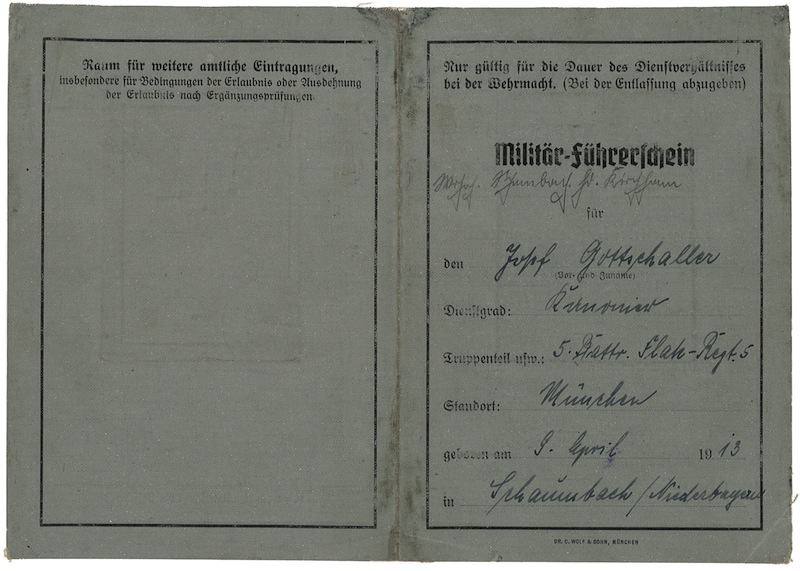 Raum für weitere amtliche Eintragungen,
insbesondere für Bedingungen der Erlaubnis oder Ausdehnung
der Erlaubnis nach Ergänzungsprüfungen.
Nur gültig für die Dauer des Dienstverhältnisses
bei der Wehrmacht. (Bei der Entlassung abzugeben)
Militär-Führerschein
für
den Josef Gottschaller
(Vor- und Zuname)
Dienstgrad: Kanonier
Truppenteil usw.: 5. Battr. Flak-Regt. 5
Standort: München
geboren am 9. April 1913
in Schaumbach / Niederbayern
DR. C. WOLF & SOHN, MÜNCHEN